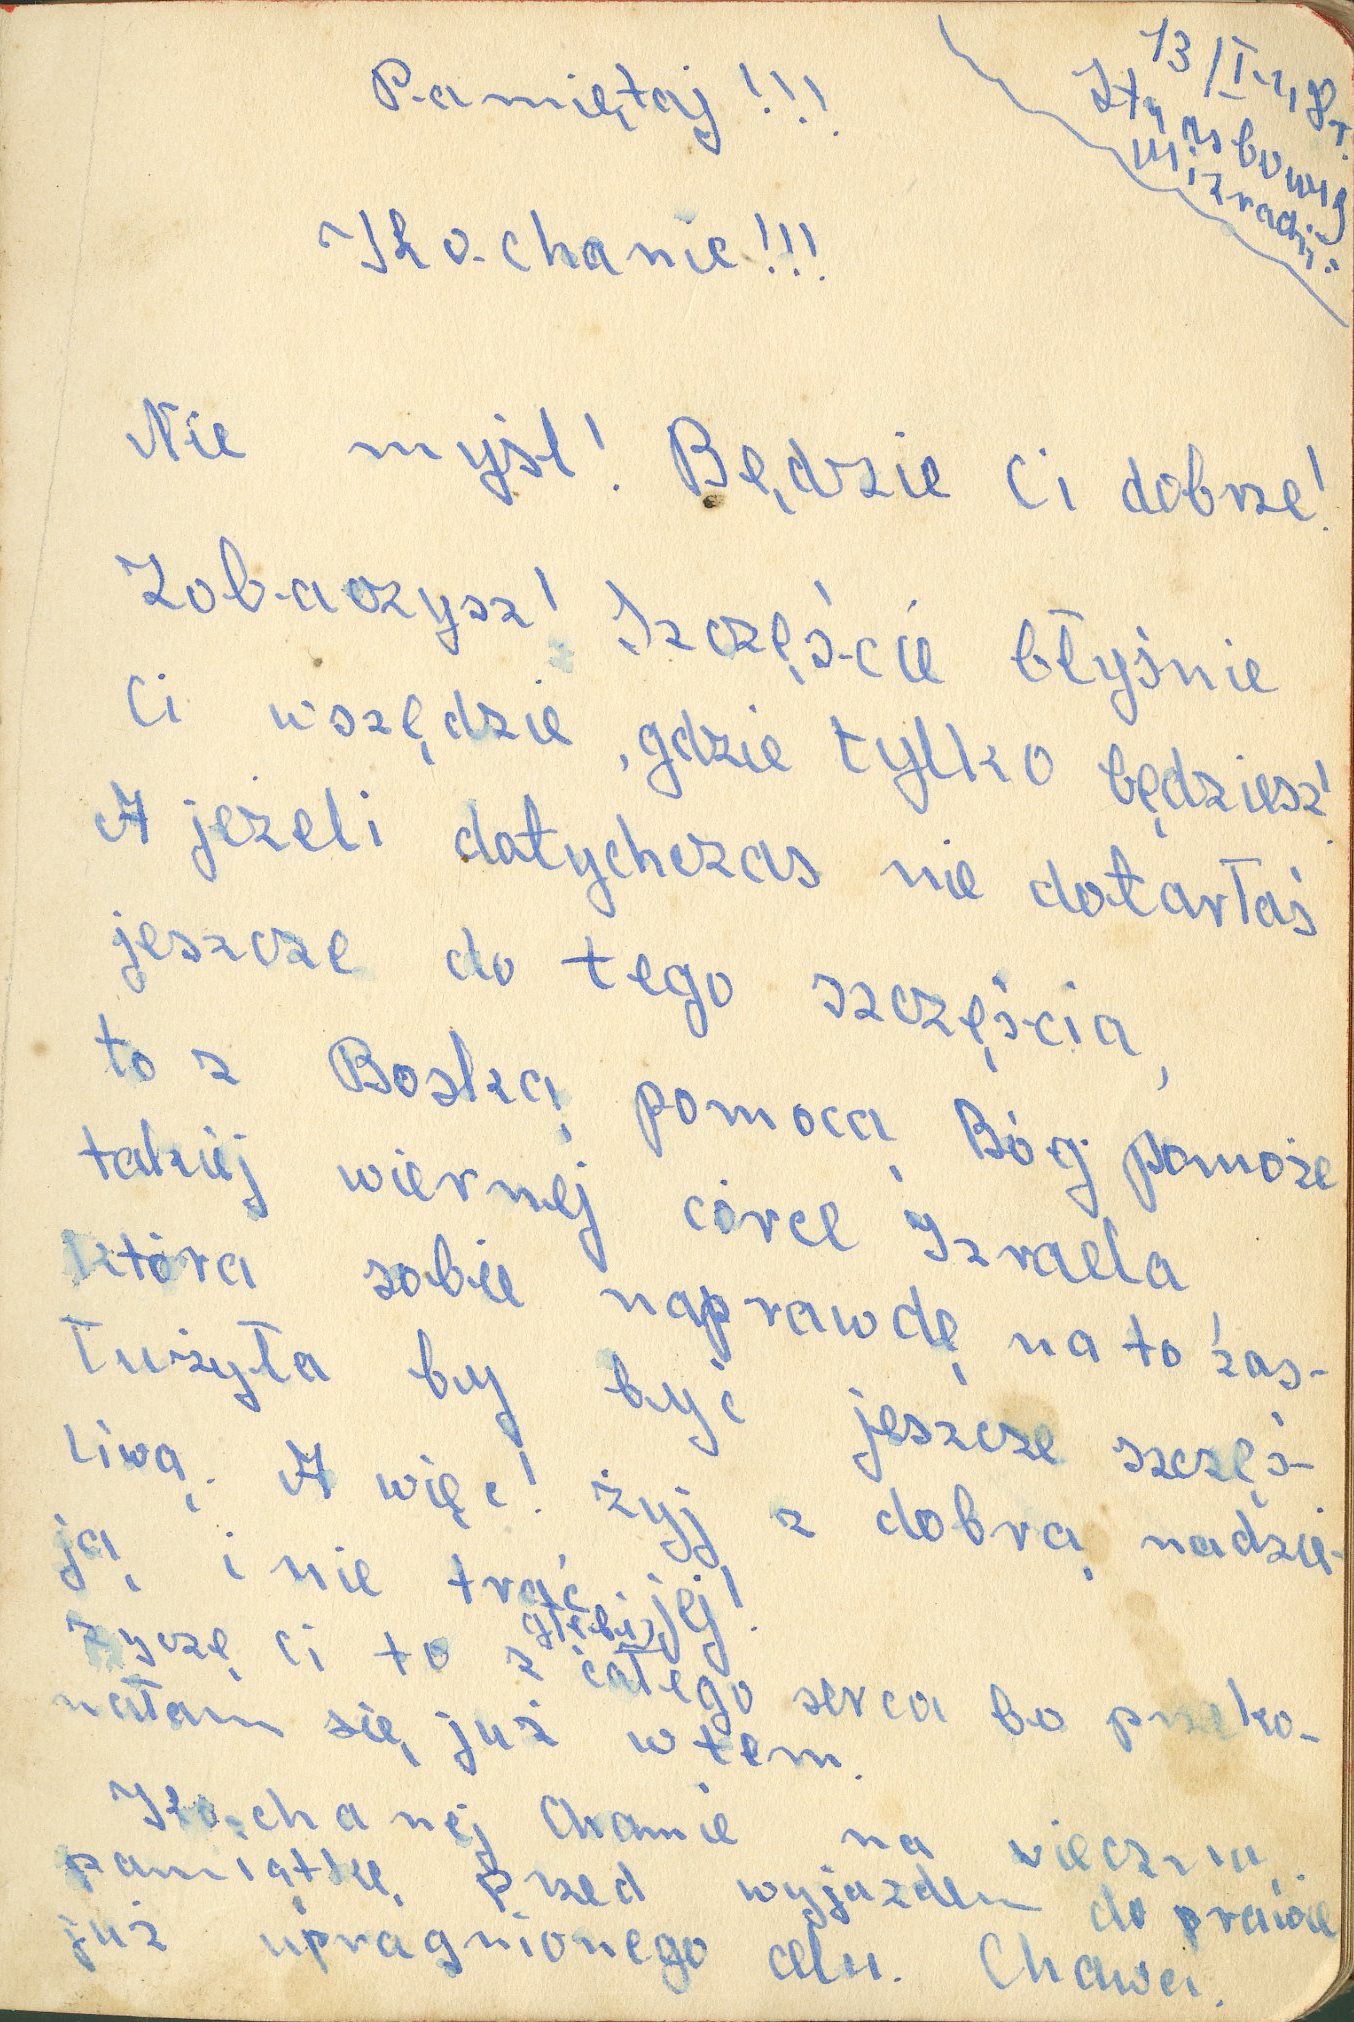 13/I-48r.
Pamiętaj!!!
Kochanie!!!
Nie myśl! Będzie Ci dobrze!
Zobaczysz! Szczęście błyśnie
Ci wszędzie, gdzie tylko będziesz!
A jeżeli dotychczas nie dotarłaś
jeszcze do tego szczęścia,
to z Boską pomocą Bóg pomoże
takiej wiernej córce Izraela
która sobie naprawdę na to zas-
łużyła by być jeszcze szczęś-
liwą. A więc! żyj z dobrą nadzie-
ją i nie trać jej!
życzę ci to z głębi całego serca bo przeko-
nałam się już w tem.
Kochanej Chamie na wieczną
pamiątkę przed wyjazdem do prawie
już upragnionego celu. Chawa.